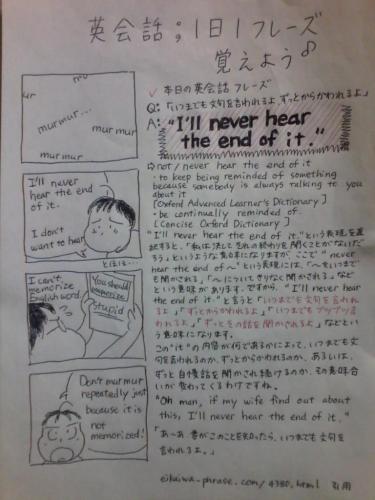 英会話；1日1フレーズ
覚えよう♪
mur
ur
murmur...
murmur
murmur
I'll never
hear the end
of it.
I don't
want to hear
とほほ…
I can't
memorize
English word.
You should
memorize
stupid
Don't murmur
repeatedly just
because it is
not
memorized!
✓ 本日の英会話 フレーズ
Q:「いつまでも文句を言われるよ、ずっとからかわれるよ」
A: "I'll never hear
the end of it."
not / never hear the end of it
・to keep being reminded of something
because somebody is always talking to you
about it
[Oxford Advanced Learner's Dictionary]
・be continually reminded of.
[Concise Oxford Dictionary]
"I'll never hear the end of it."という表現を直
訳すると、「私は決してそれの終わりを聞くことがないだ
ろう」というような意味になりますが、ここで"never
hear the end of～"という表現には、「～をいつまで
も聞かされる」「～についてきりなく聞かされる」など
という意味があります。ですから、"I'll never hear
the end of it."と言うと「いつまでも文句を言われ
るよ」「ずっとからかわれるよ」「いつまでもブツブツ言
われるよ」「ずっとその話を聞かされるよ」などとい
う意味になります。
この"it"の内容が何であるかによって、いつまでも文
句を言われるのか、ずっとからかわれるのか、あるいは、
ずっと自慢話を聞かされ続けるのか、その意味合
いが変わってくるわけですね。
"Oh man, if my wife find out about
this, I'll never hear the end of it."
「あ～あ 妻がこのことを知ったら、いつまでも文句を
言われるよ。」
eikaiwa-phrase.com/4380.html 引用